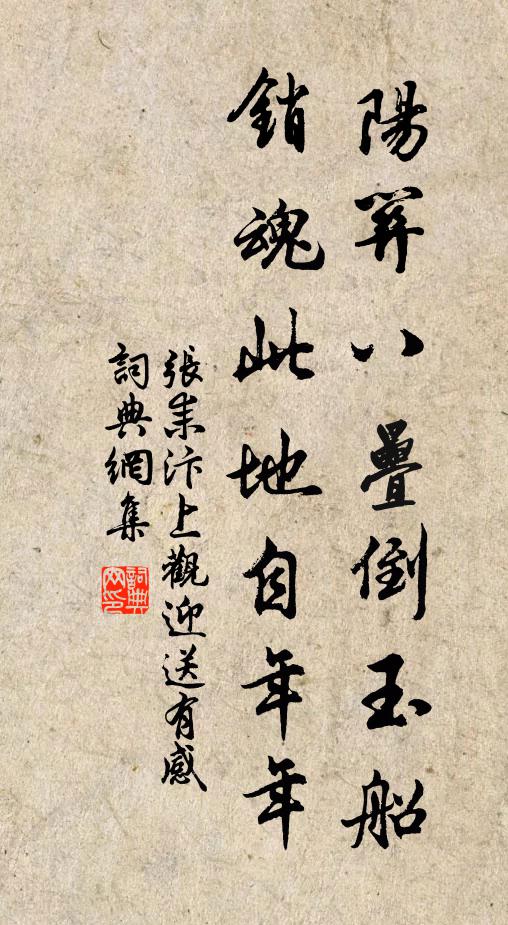 陽關八疊倒玉船
銷魂此地自年年
張耒汴上觀迎送有感
詞典網集
詞典网印